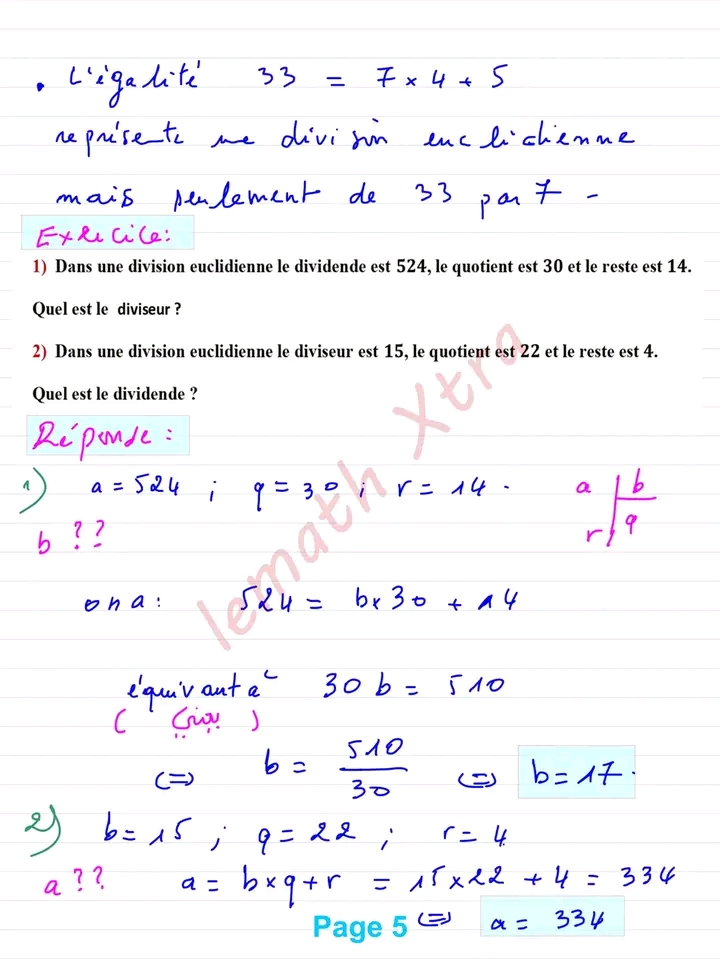 • L'égalité 33 = 7 × 4 + 5
représente une division euclidienne
mais seulement de 33 par 7 -
Exercice:
1) Dans une division euclidienne le dividende est 524, le quotient est 30 et le reste est 14.
Quel est le diviseur ?
2) Dans une division euclidienne le diviseur est 15, le quotient est 22 et le reste est 4.
Quel est le dividende ?
Réponse :
1) a = 524 ; q = 30 ; r = 14 .
a b
r q
b ??
on a : 524 = b × 30 + 14
équivant à 30 b = 510
( يعني )
⇔ b = 510/30 ⇔ b = 17 .
2) b = 15 ; q = 22 ; r = 4
a ?? a = b × q + r = 15 × 22 + 4 = 334
⇔ a = 334
Page 5
lemath Xtra